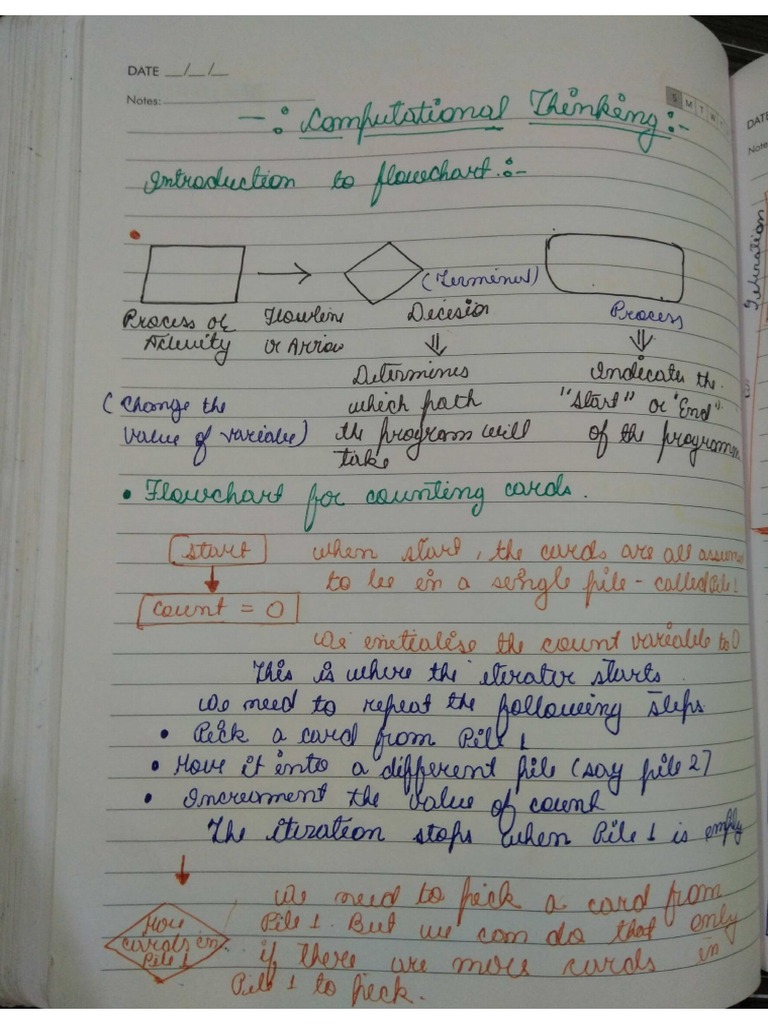 DATE __/__/__
Notes:
S M T W
-: Computational Thinking:-
Introduction to flowchart:-
Process or Activity
Flowline or Arrow
(Terminel)
Decision
Process
(Change the value of variable)
⇓
Determines which path the program will take
⇓
Indicates the "Start" or "End" of the program
• Flowchart for counting cards.
Start
when start, the cards are all assum
to be in a single pile - called Pile 1
Count = 0
We initialise the count variable to 0
This is where the iterater starts
We need to repeat the following steps
• Pick a card from Pile 1
• Move it into a different pile (say pile 2)
• Increment the value of count
The iteration stops when Pile 1 is empty
More
cards in
Pile 1
we need to pick a card from
Pile 1. But we can do that only
if there are more cards in
Pile 1 to pick.
DATE
Note